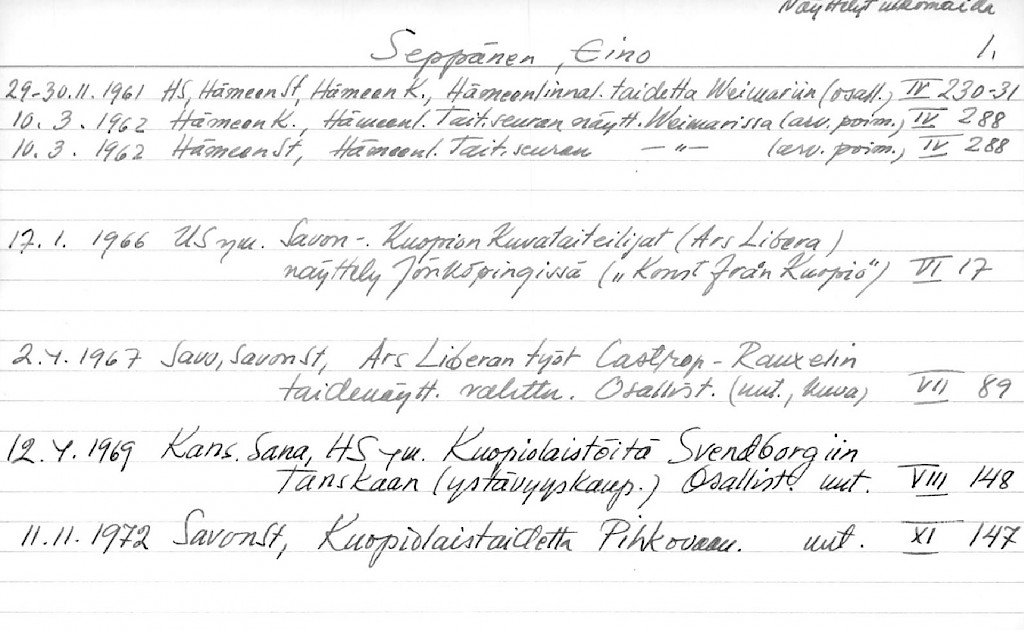 Näyttelyt ulkomailla
Seppänen, Eino 1.
29-30.11.1961 HS, HämeenSt, Hämeen K., Hämeenlinnal. taidetta Weimariin (osall.) IV 230-31
10.3.1962 Hämeen K., Hämeenl. Tait.seuran näytt. Weimarissa (arv. poim.) IV 288
10.3.1962 HämeenSt, Hämeenl. Tait.seuran —"— (arv. poim.) IV 288
17.1.1966 US ym. Savon-Kuopion Kuvataiteilijat (Ars Libera)
näyttely Jönköpingissä („Konst från Kuopio") VI 17
2.4.1967 Savo, SavonSt, Ars Liberan työt Castrop-Rauxelin
taidenäytt. valittu. Osallist. (uut., kuva) VII 89
12.4.1969 Kans. Sana, HS ym. Kuopiolaistöitä Svendborgiin
Tanskaan (ystävyyskaup.) Osallist. uut. VIII 148
11.11.1972 SavonSt, Kuopiolaistaidetta Pihkovaan. uut. XI 147